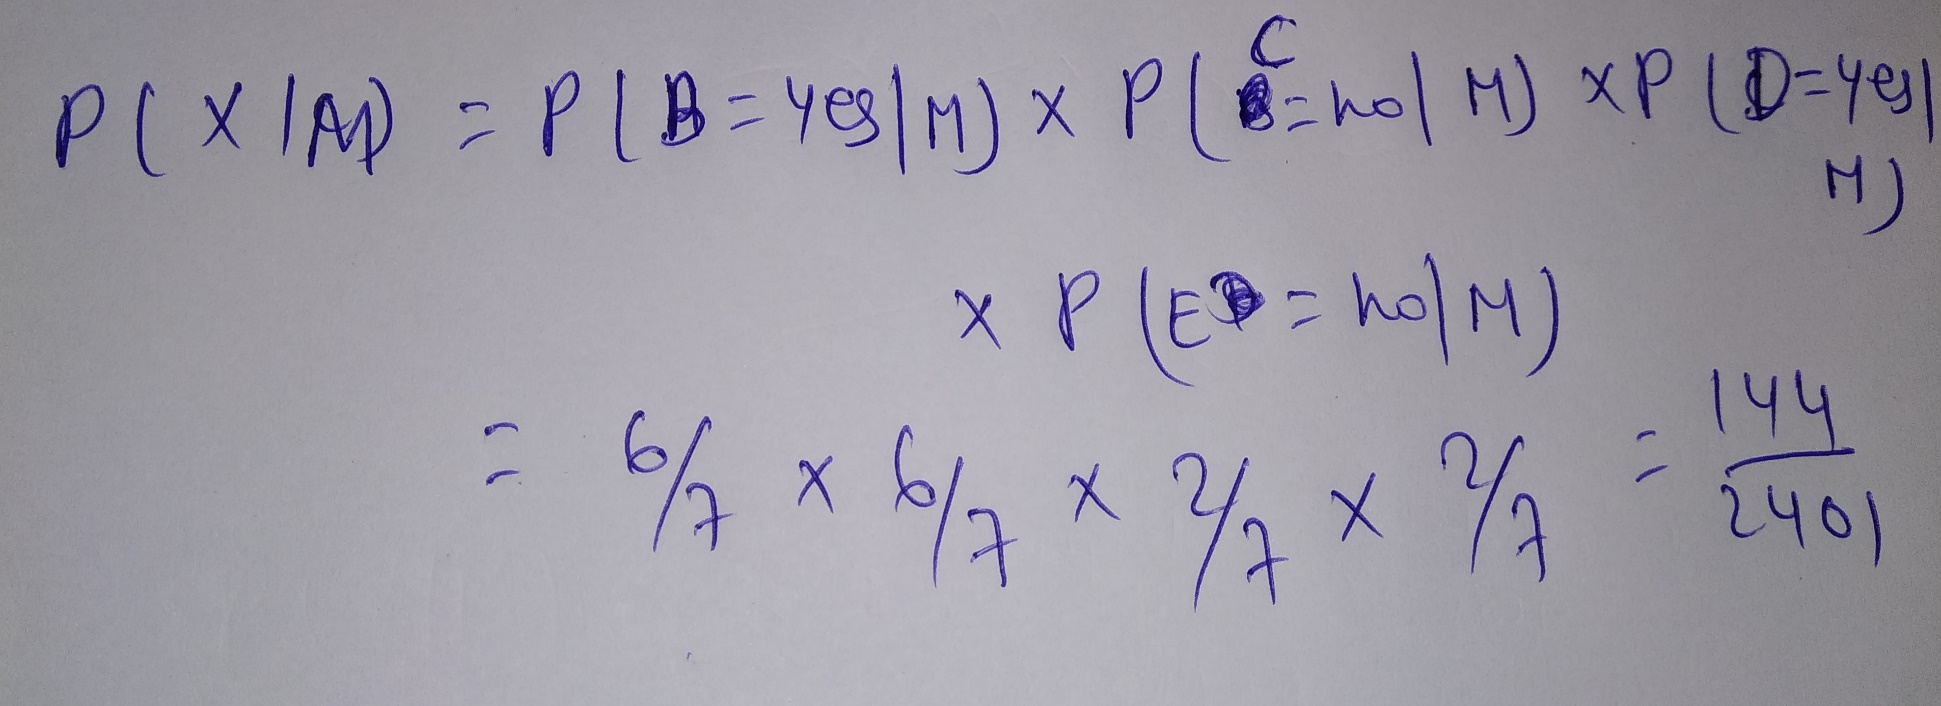 P(X|A) = P(B=Yes|M) x P(C=no|M) x P(D=Yes|
M)
x P(E=no|M)
= 6/7 x 6/7 x 2/7 x 2/7 = 144/2401